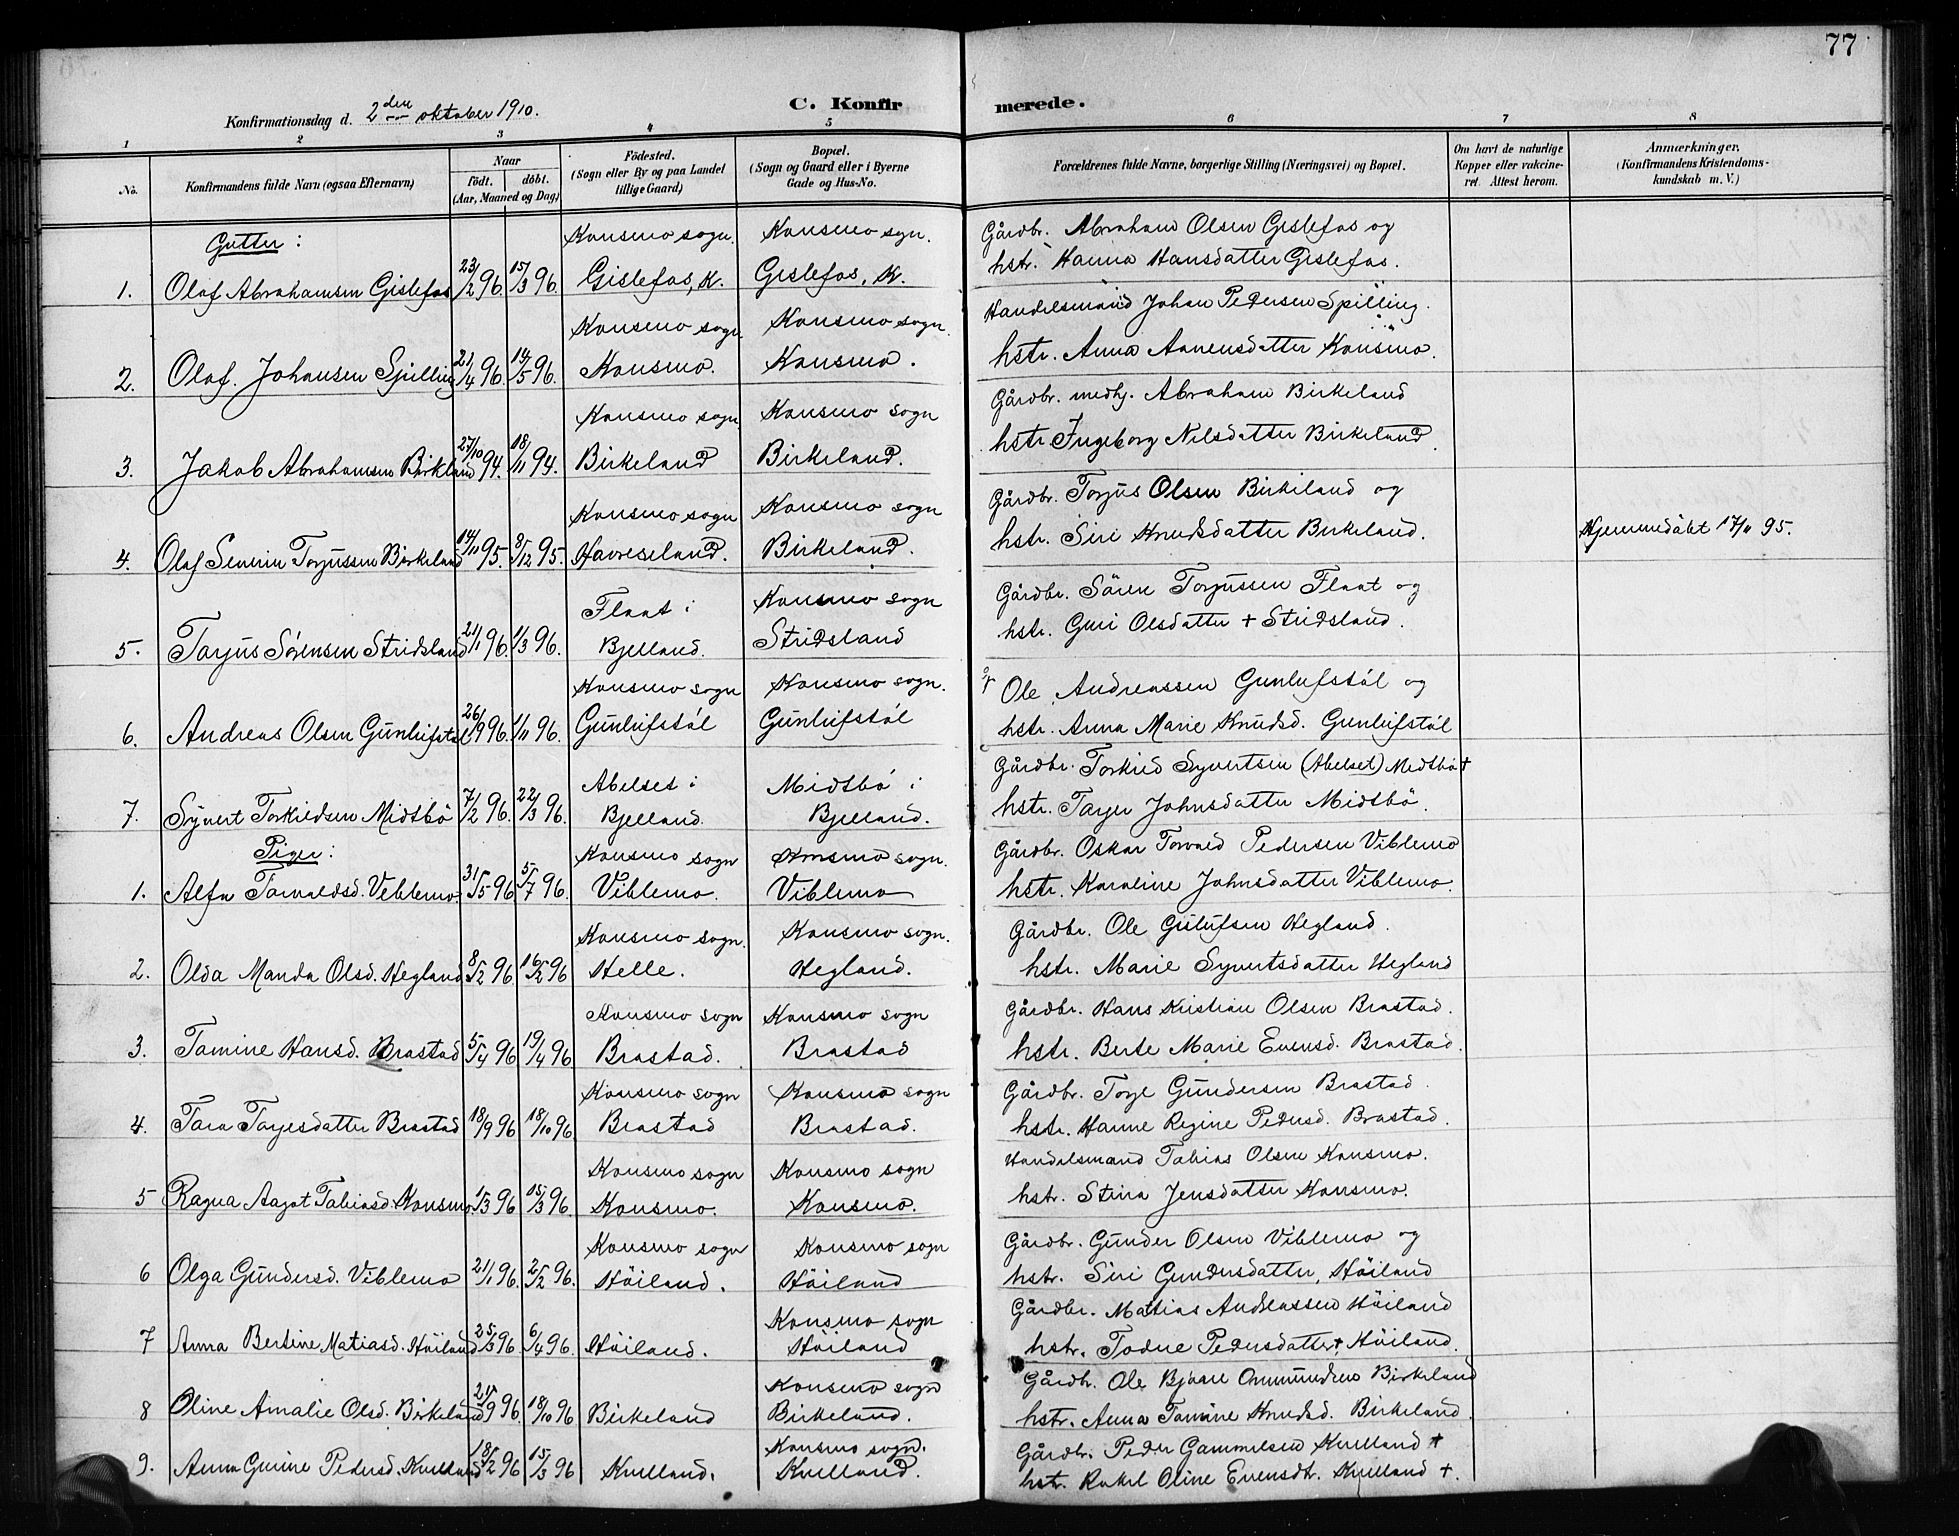 77
Konfirmationsdag d. 2den oktober 1910.
C. Konfirmerede.
1 2 3 4 5 6 7 8
No.
Konfirmandens fulde Navn (ogsaa Efternavn)
Naar
født. døbt.
(Aar, Maaned og Dag)
Fødested.
(Sogn eller By og paa Landet
tillige Gaard)
Bopæl.
(Sogn og Gaard eller i Byerne
Gade og Hus-No.
Forældrenes fulde Navne, borgerlige Stilling (Næringsvei) og Bopæl.
Om havt de naturlige
Kopper eller vakcine-
ret. Attest herom.
Anmærkninger.
(Konfirmandens Kristendoms-
kundskab m. V.)
Gutter:
Konsmo sogn. Konsmo sogn. Gårdbr. Abraham Olsen Gislefos og
1. Olaf Abrahamsen Gislefos 23/2 96. 15/3 96. Gislefos, K. Gislefos, K. hstr. Hanna Hansdatter Gislefos.
Konsmo sogn Konsmo sogn. Handelsmand Johan Pedersen Spilling.
2. Olaf Johansen Spilling 21/4 96. 14/5 96. Konsmo. Konsmo. hstr. Anna Aanensdatter Konsmo.
Konsmo sogn. Konsmo sogn Gårdbr. medhj. Abraham Birkeland
3. Jakob Abrahamsen Birkland 27/10 94. 18/11 94. Birkeland Birkeland. hstr. Ingeborg Nilsdatter Birkeland.
Konsmo sogn Konsmo sogn Gårdbr. Torjus Olsen Birkeland og
4. Olaf Severin Torjussen Birkeland 14/11 95. 8/12 95. Havreseland. Birkeland. hstr. Siri Knudsdatter Birkeland. Hjemmedåbt 17/11 95.
Flaat i Konsmo sogn Gårdbr. Sören Torjussen Flaat og
5. Tarjus Sørensen Stridsland 21/1 96. 1/3 96. Bjelland. Stridsland hstr. Guri Olsdatter + Stridsland.
Konsmo sogn Konsmo sogn. Ole Andreassen Gunlufstøl og
6. Andreas Olsen Gunlufstøl 26/9 96. 1/11 96. Gunlufstøl Gunlufstøl hstr. Anna Marie Knudsd. Gunlufstøl
Abelset i Midtbö i Gårdbr. Torkild Syvertsen (Abelset) Midtbö +
7. Syvert Torkildsen Midtbö 7/2 96. 22/3 96. Bjelland. Bjelland. hstr. Tarjer Johnsdatter Midtbö.
Piger:
Konsmo sogn Konsmo sogn. Gårdbr. Oskar Torvald Pedersen Viblemo
1. Alfa Torvaldsd. Viblemo. 31/5 96 5/7 96. Viblemo. Viblemo hstr. Karoline Johnsdatter Viblemo.
Konsmo sogn. Konsmo sogn. Gårdbr. Ole Gislufsen Hegland.
2. Olda Manda Olsd. Hegland 8/2 96. 16/2 96 Helle. Hegland. hstr. Marie Syvertsdatter Hegland
Konsmo sogn Konsmo sogn Gårdbr. Hans Kristian Olsen Brastad.
3. Tomine Hansd. Brastad 5/4 96 19/4 96 Brastad. Brastad hstr. Berte Marie Evensd. Brastad.
Konsmo sogn Konsmo sogn Gårdbr. Torje Gundersen Brastad.
4. Tora Torjesdatter Brastad 18/9 96 18/10 96. Brastad Brastad. hstr. Hanne Regine Pedersd. Brastad.
Konsmo sogn Konsmo sogn Handelsmand Tobias Olsen Konsmo.
5 Ragna Aagot Tobiasd. Konsmo. 1/3 96 15/3 96. Konsmo. Konsmo. hstr. Stina Jensdatter Konsmo.
Konsmo sogn Konsmo sogn Gårdbr. Gunder Olsen Viblemo og
6 Olga Gundersd. Viblemo 21/1 96. 2/2 96. Höiland. Höiland hstr. Siri Gundersdatter, Höiland
Konsmo sogn Gårdbr. Matias Andreassen Höiland
7 Anna Bertine Matiasd. Höiland 25/3 96 6/4 96. Höiland. Höiland hstr. Todne Pedersdatter +, Höiland.
Konsmo sogn Gårdbr. Ole Bjaare Ommundsen Birkeland
8 Oline Amalie Olsd. Birkeland 21/9 96. 18/10 96 Birkeland Birkeland. hstr. Anna Tomine Knudsd. Birkeland.
Konsmo sogn. Gårdbr. Peder Gammelsen Kvelland +
9. Anna Gurine Pedersd. Kvelland 18/2 96 15/3 96 Kvelland. Kvelland. hstr. Rakel Oline Evensdtr. Kvelland +.